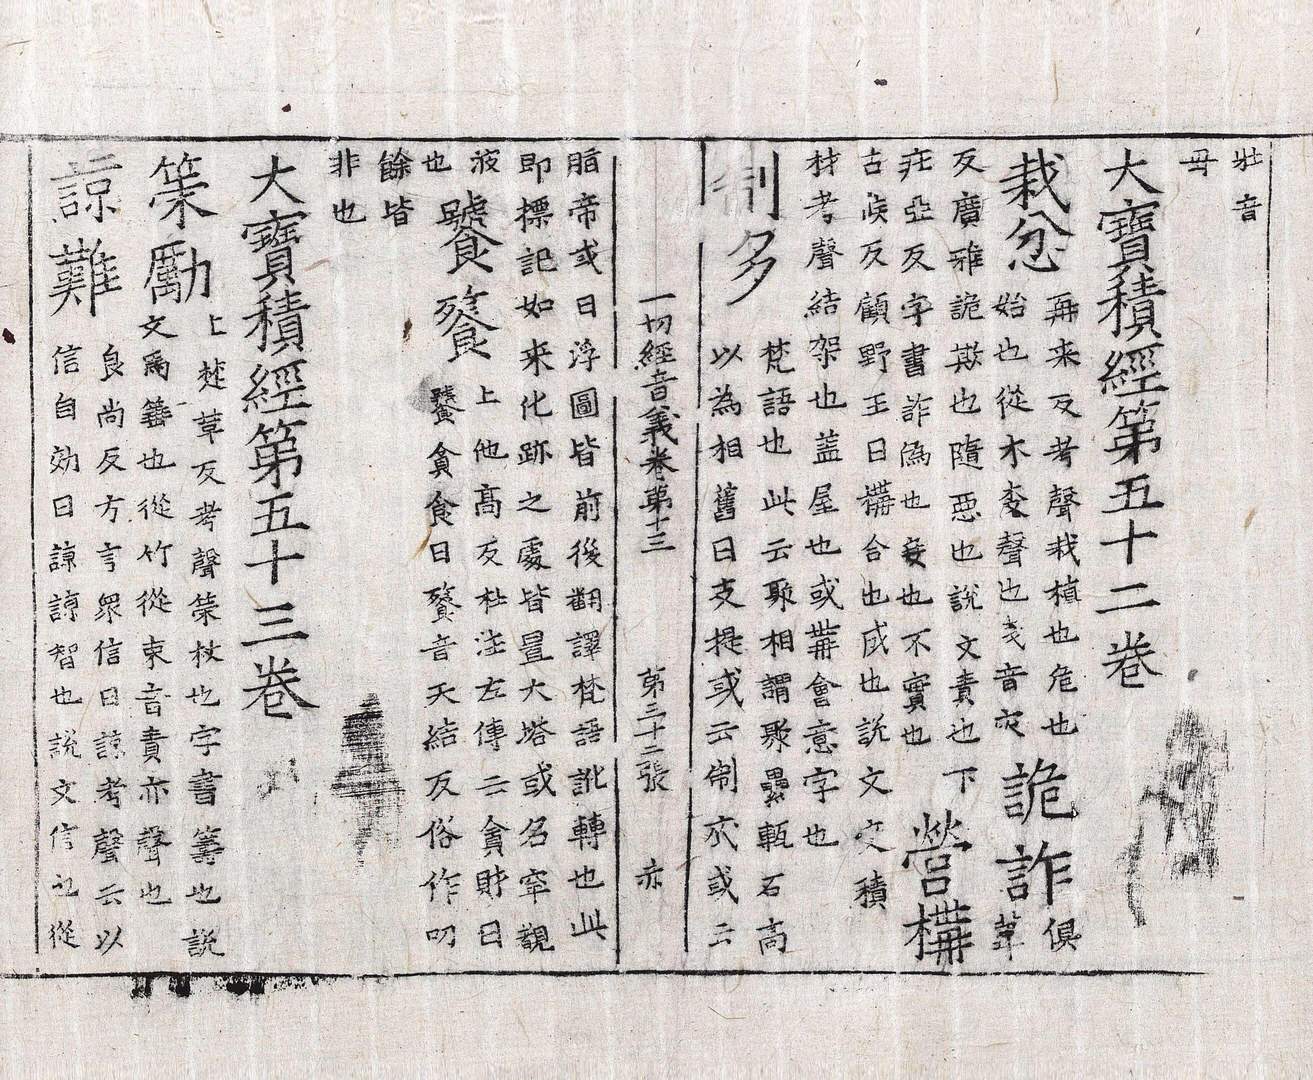 壯音
母
大寶積經第五十二卷
栽忿
再来反考聲栽植也危也
始也從木𢦏聲也𢦏音灾
詭詐
俱葦
反廣雅詭欺也隨惡也說文責也下
莊亞反字書詐偽也妄也不實也
營構
古候反顧野王曰構合也成也說文文積
材考聲結架也蓋屋也或冓會意字也
制多
梵語也此云聚相謂聚壘甎石高
以為相舊曰支提或云制底或云
一切經音義卷第十三 第三十二張 亦
脂帝或曰浮圖皆前後翻譯梵語訛轉也此
即標記如来化跡之處皆置大塔或名窣覩
波也
饕餮
上他髙反杜注左傳云貪財曰
饕貪食曰餮音天結反俗作叨
餘皆
非也
大寶積經第五十三卷
策勵
上楚草反考聲策杖也字書籌也說
文爲籌也從竹從朿音責亦聲也
諒難
良尚反方言衆信曰諒考聲云以
信自効曰諒諒智也說文信也從